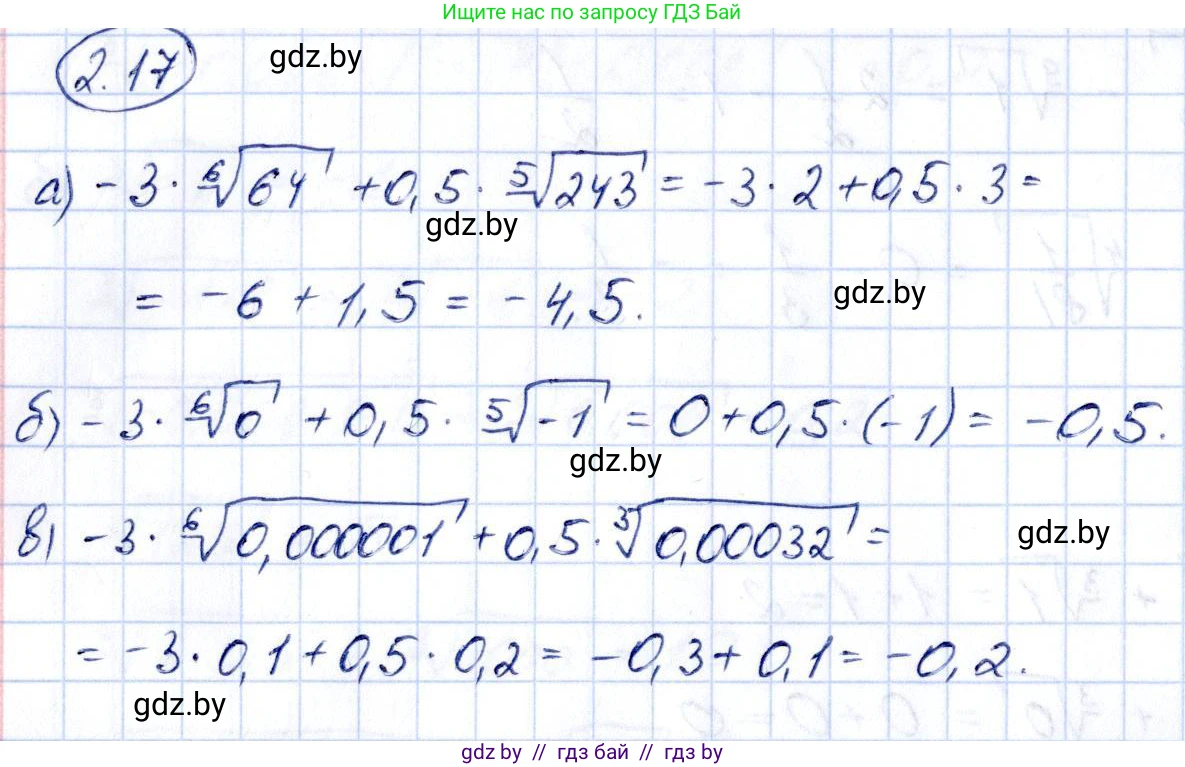 Ищите нас по запросу ГДЗ Бай
2.17 gdz.by
а) -3 · ⁶√64 + 0,5 · ⁵√243 = -3 · 2 + 0,5 · 3 =
gdz.by
= -6 + 1,5 = -4,5. gdz.by
б) -3 · ⁶√0 + 0,5 · ⁵√-1 = 0 + 0,5 · (-1) = -0,5.
gdz.by
в) -3 · ⁶√0,000001 + 0,5 · ³√0,00032 = gdz.by
= -3 · 0,1 + 0,5 · 0,2 = -0,3 + 0,1 = -0,2.
gdz.by
gdz by // гдз бай // гдз by